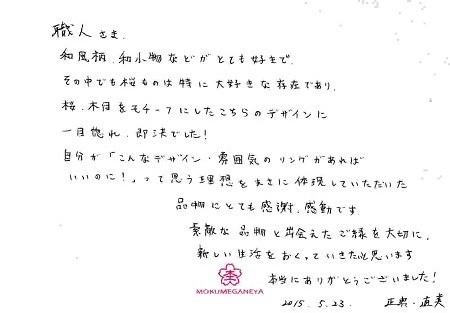 職人さま
和風柄、和小物などがとても好きで、
その中でも桜ものは特に大好きな存在であり、
桜、木目をモチーフにしたこちらのデザインに
一目惚れ、即決でした！
自分が「こんなデザイン・雰囲気のリングがあれば
いいのに！」って思う理想をまさに体現していただいた
品物にとても感謝、感動です
素敵な品物と出会えたご縁を大切に、
新しい生活をおくっていきたいと思います
本当にありがとうございました！
MOKUMEGANEYA
2015.5.23. 正典・直美